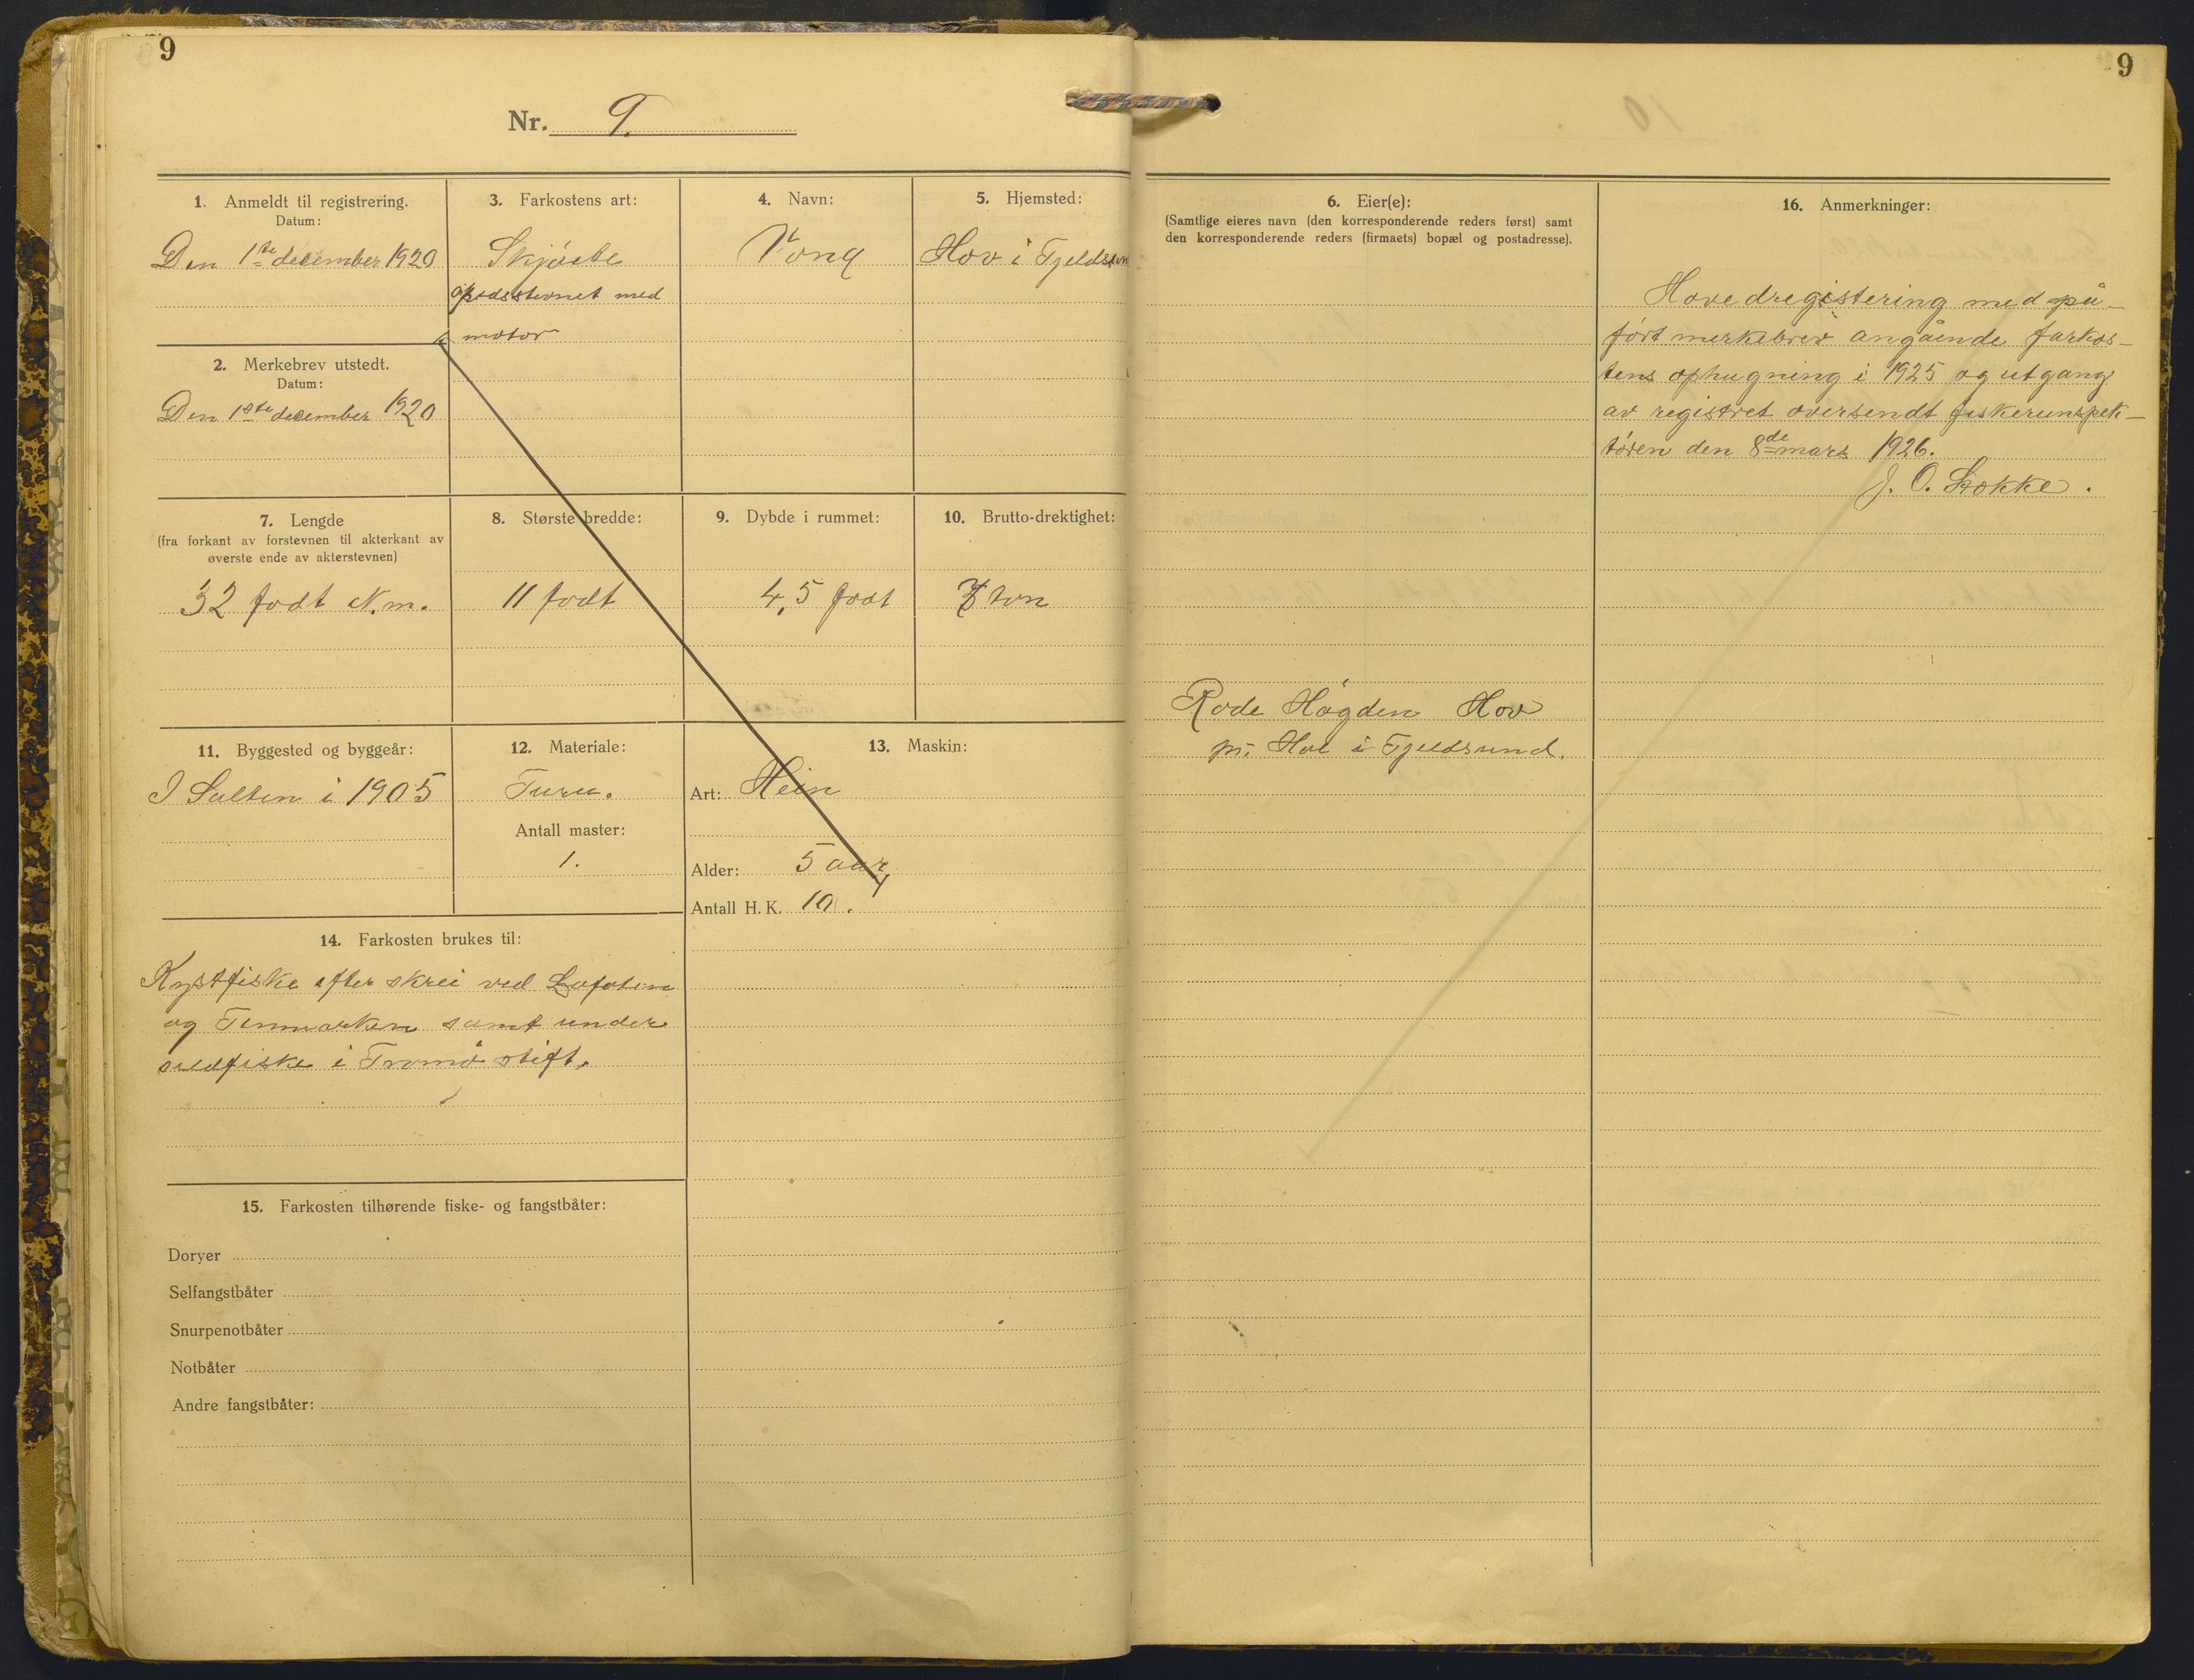 9
Nr. 9.
1. Anmeldt til registrering.
Datum:
Den 1ste december 1920
2. Merkebrev utstedt.
Datum:
Den 1ste december 1920
3. Farkostens art:
Skjøite
spedsstevnet med
motor
4. Navn:
5. Hjemsted:
Hov i Tjeldsun
7. Lengde
(fra forkant av forstevnen til akterkant av
øverste ende av akterstevnen)
32 fodt N.m.
8. Største bredde:
11 fodt
9. Dybde i rummet:
4,5 fodt
10. Brutto-drektighet:
ton
11. Byggested og byggeår:
I Salten i 1905
12. Materiale:
Furu.
Antall master:
1.
13. Maskin:
Art: Hein
Alder: 5 aar
Antall H.K. 10.
14. Farkosten brukes til:
Kystfiske efter skrei ved Lofoten
og Finmarken samt under
sildfiske i Tromsø stift.
15. Farkosten tilhørende fiske- og fangstbåter:
Doryer
Selfangstbåter
Snurpenotbåter
Notbåter
Andre fangstbåter:
9
6. Eier(e):
(Samtlige eieres navn (den korresponderende reders først) samt
den korresponderende reders (firmaets) bopæl og postadresse).
Rode Høgden Hov
pr. Hol i Tjeldsund.
16. Anmerkninger:
Hovedregistering med på-
ført merkebrev angående farkos-
tens ophugning i 1925 og utgang
av registret oversendt fiskeriinspek-
tøren den 8de mars 1926.
J. O. Løkke.